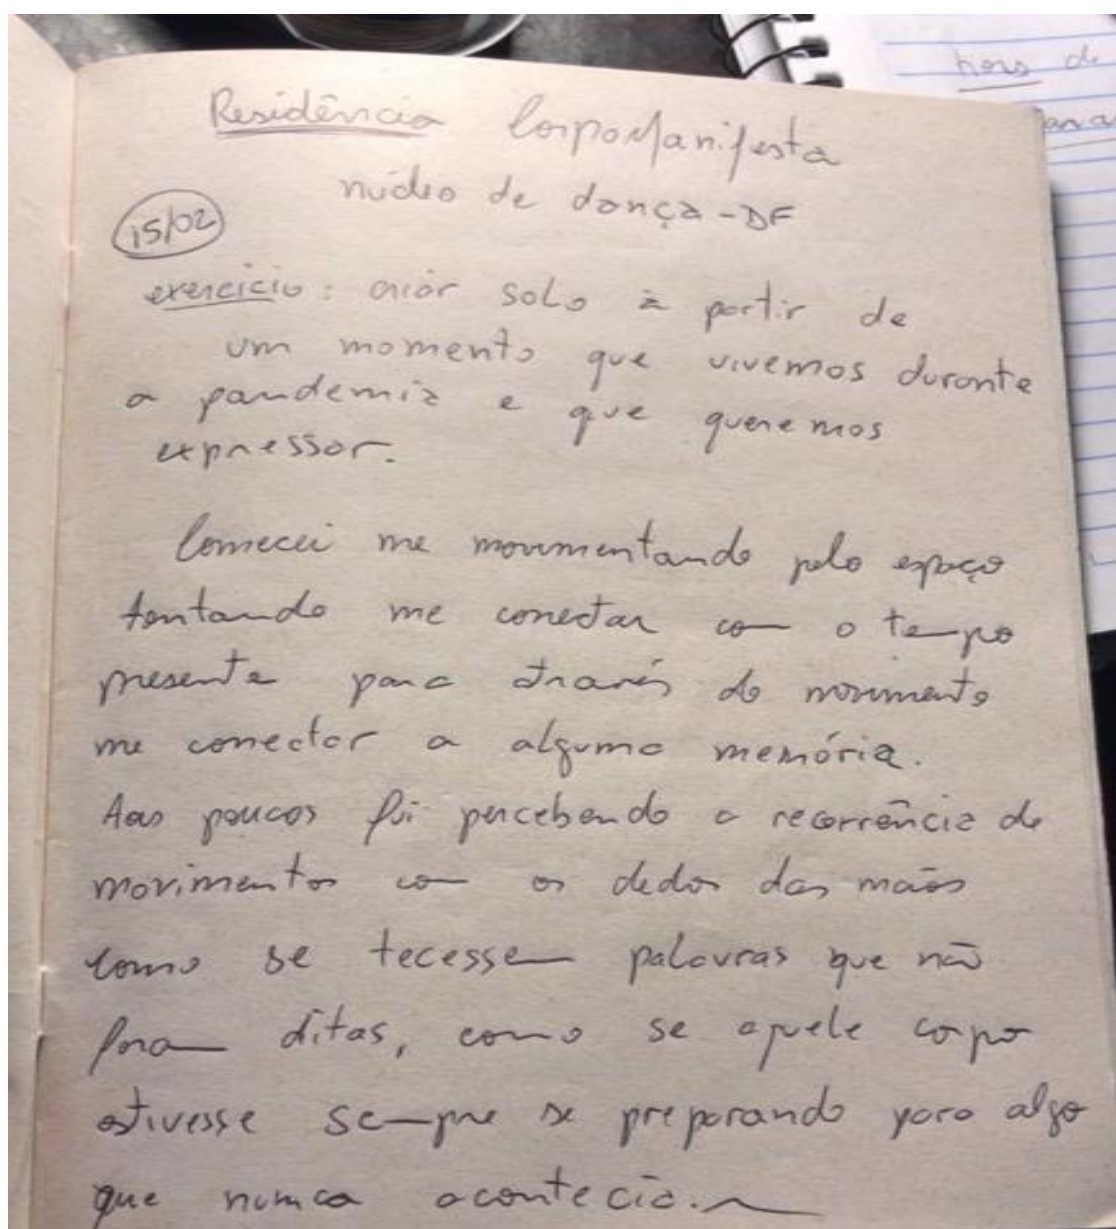 Residência CorpoManifesta
núcleo de dança - DF
15/02
exercício: criar solo à partir de
um momento que vivemos durante
a pandemia e que queremos
expressar.
Comecei me movimentando pelo espaço
tentando me conectar com o tempo
presente para através do movimento
me conectar a alguma memória.
Aos poucos fui percebendo a recorrência de
movimentos com os dedos das mãos
como se tecessem palavras que não
foram ditas, como se aquele corpo
estivesse sempre se preparando para algo
que nunca acontecia.
de